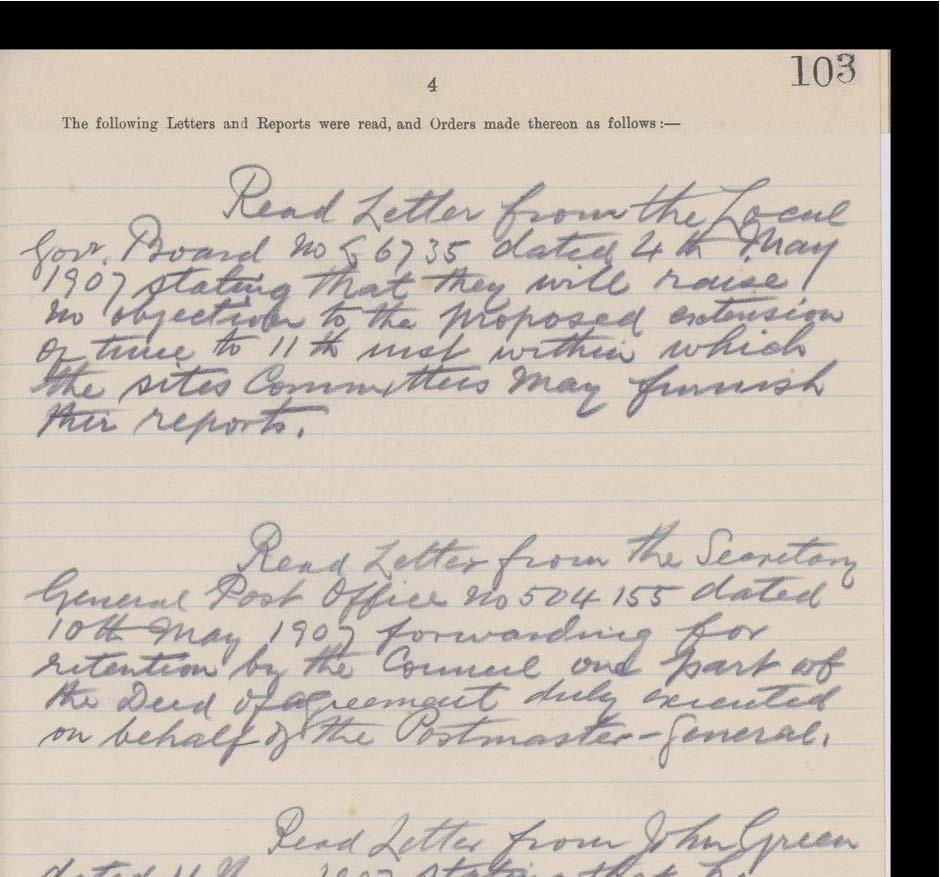 103
4
The following Letters and Reports were read, and Orders made thereon as follows:—
Read Letter from the Local
Govr. Board No dated 4th May
1907 stating that they will raise
no objection to the proposed extension
of time to 11th inst within which
the sites Committees may furnish
their reports.
Read Letter from the Secretary
General Post Office No 504155 dated
10th May 1907 forwarding for
retention by the Council one part of
the Deed of agreement duly executed
on behalf of the Postmaster-General.
Read Letter from John Green
dated 1907 stating that he